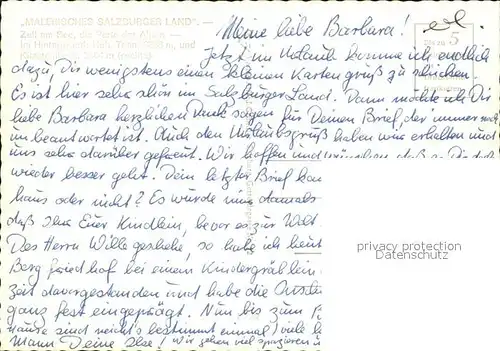 "MALERISCHES SALZBURGER LAND"
Zell am See, die Perle der Alpen
Meine liebe Barbara!
5
Jetzt im Urlaub komme ich endlich
dazu, Dir wenigstens einen kleinen Kartengruß zu schicken.
Es ist hier sehr schön im Salzburger Land. Dann möchte ich Dir
liebe Barbara herzlichen Dank sagen für Deinen Brief, der immer noch
unbeantwortet ist. Auch den Urlaubsgruß haben wir erhalten und
uns sehr darüber gefreut. Wir hoffen und wünschen daß
wieder besser geht. Dein letzter Brief
haus oder nicht? Es würde mir damals
daß Ihr Euer Kindlein, bevor es zur Welt
Des Herrn Wille geschehe, so habe ich heute
Berg friedhof bei einem Kindergräblein
zeit davorgestanden und habe die
ganz fest eingeprägt. Nun bis zum
Hause sind recht bestimmt einmal viele
Mann Deine Ilse! Wir gehen viel spazieren
privacy protection
Datenschutz